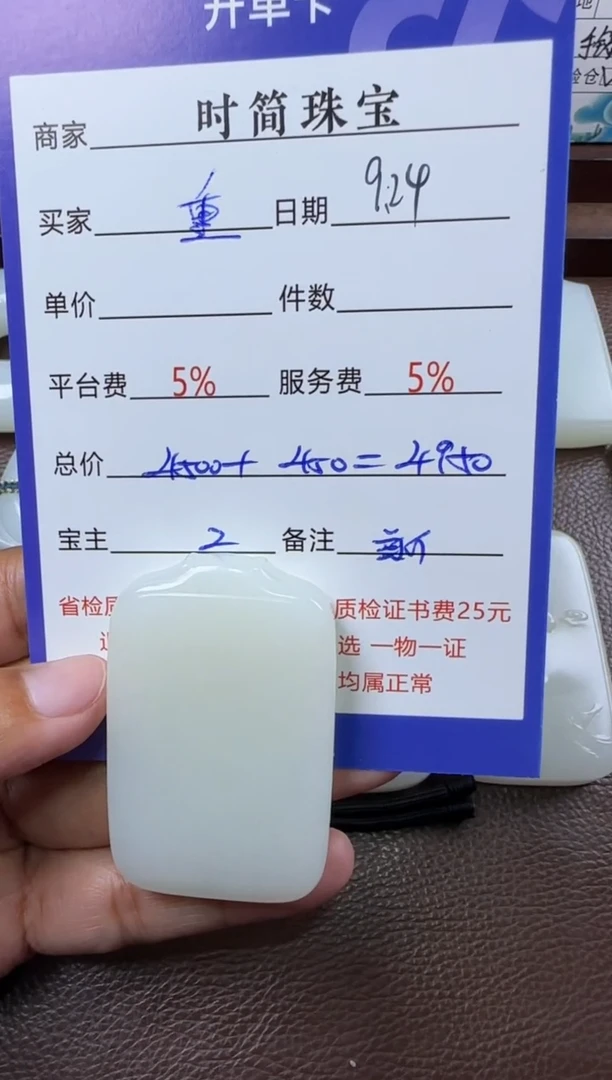 开单卡
商家 时简珠宝
买家 重 日期 9.24
单价 件数
平台费 5% 服务费 5%
总价 4500+ 450=4950
宝主 2 备注 新
省检 质检证书费25元
选 一物一证
均属正常
地